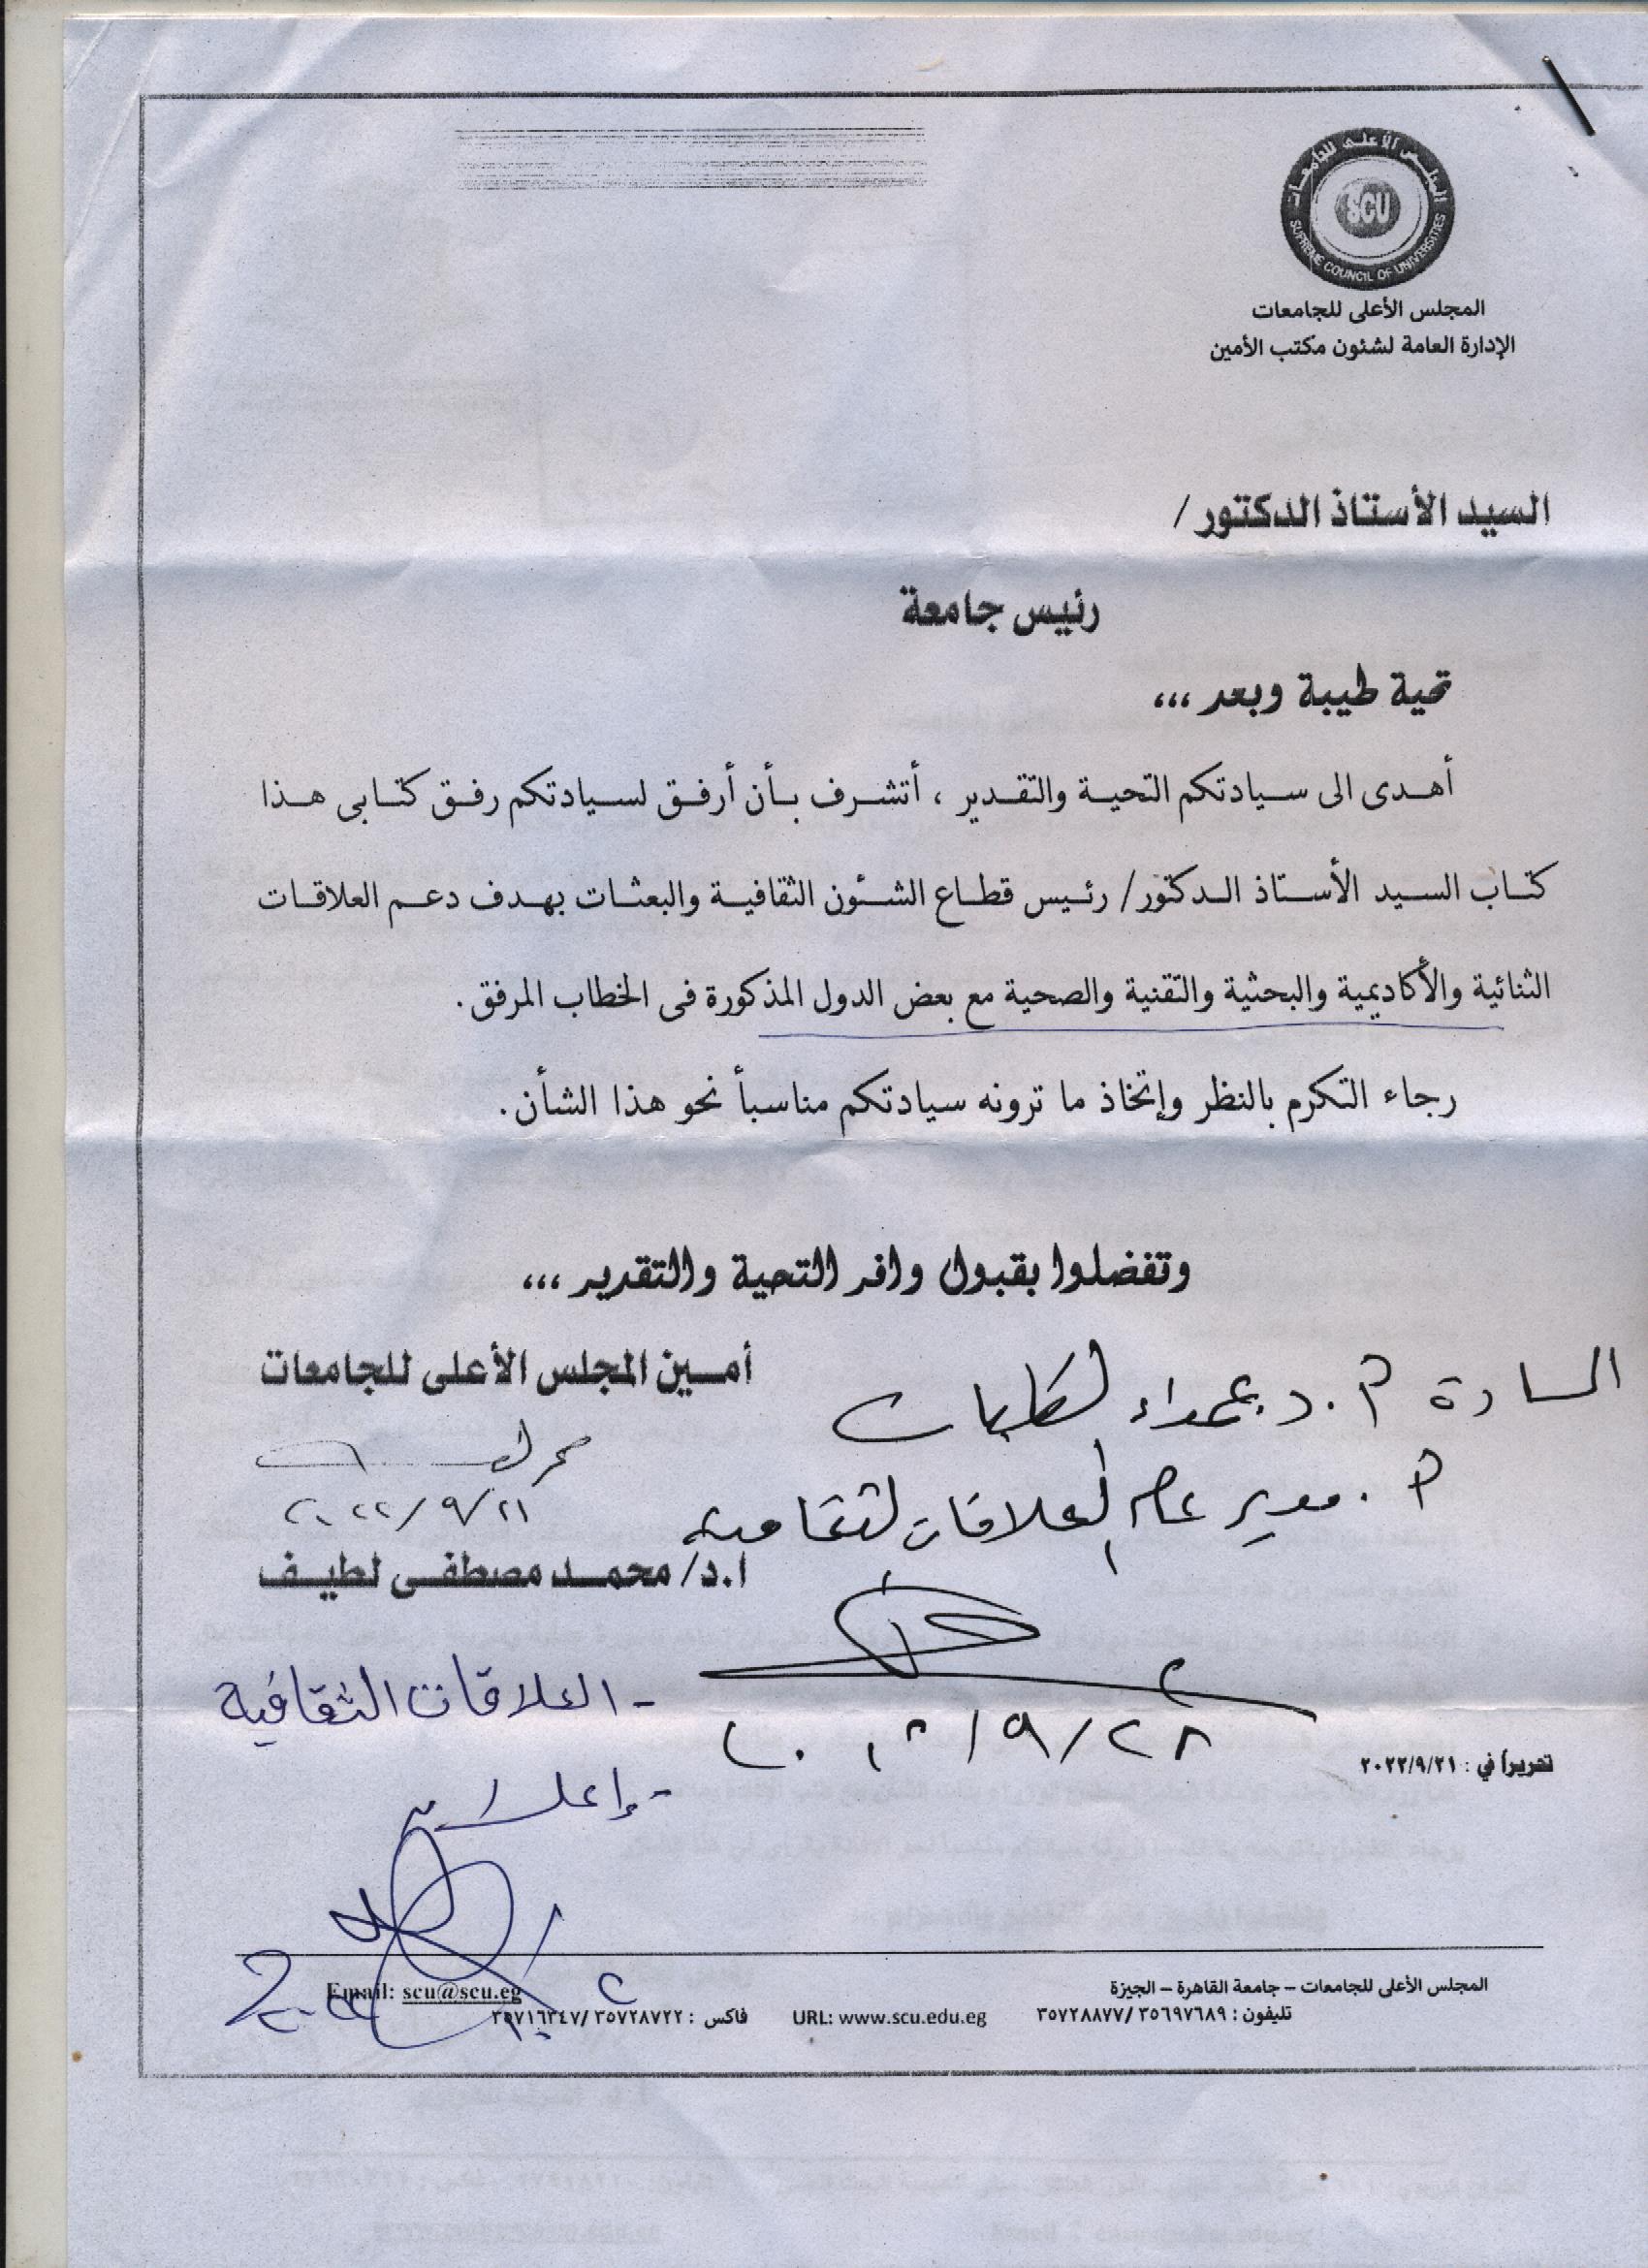 المجلس الأعلى للجامعات
SCU
SUPREME COUNCIL OF UNIVERSITIES
المجلس الأعلى للجامعات
الإدارة العامة لشئون مكتب الأمين
السيد الأستاذ الدكتور /
رئيس جامعة
تحية طيبة وبعد ...
أهدى الى سيادتكم التحية والتقدير ، أتشرف بأن أرفق لسيادتكم رفق كتابى هذا
كتاب السيد الأستاذ الدكتور/ رئيس قطاع الشئون الثقافية والبعثات بهدف دعم العلاقات
الثنائية والأكاديمية والبحثية والتقنية والصحية مع بعض الدول المذكورة فى الخطاب المرفق.
رجاء التكرم بالنظر وإتخاذ ما ترونه سيادتكم مناسباً نحو هذا الشأن.
وتفضلوا بقبول وافر التحية والتقدير ...
أمين المجلس الأعلى للجامعات
٢٠٢٢/٩/٢١
ا.د/ محمد مصطفى لطيف
السادة أ.د. عمداء الكليات
أ. مدير عام العلاقات الثقافية
٩/٢٨
- العلاقات الثقافية
تحريراً في : ٢٠٢٢/٩/٢١
المجلس الأعلى للجامعات – جامعة القاهرة – الجيزة
Email: scu@scu.eg
تليفون : ٣٥٦٩٧٦٨٩ /٣٥٧٢٨٨٧٧
URL: www.scu.edu.eg
فاكس : ٣٥٧٢٨٧٢٢ /٣٥٧١٦٣٤٧